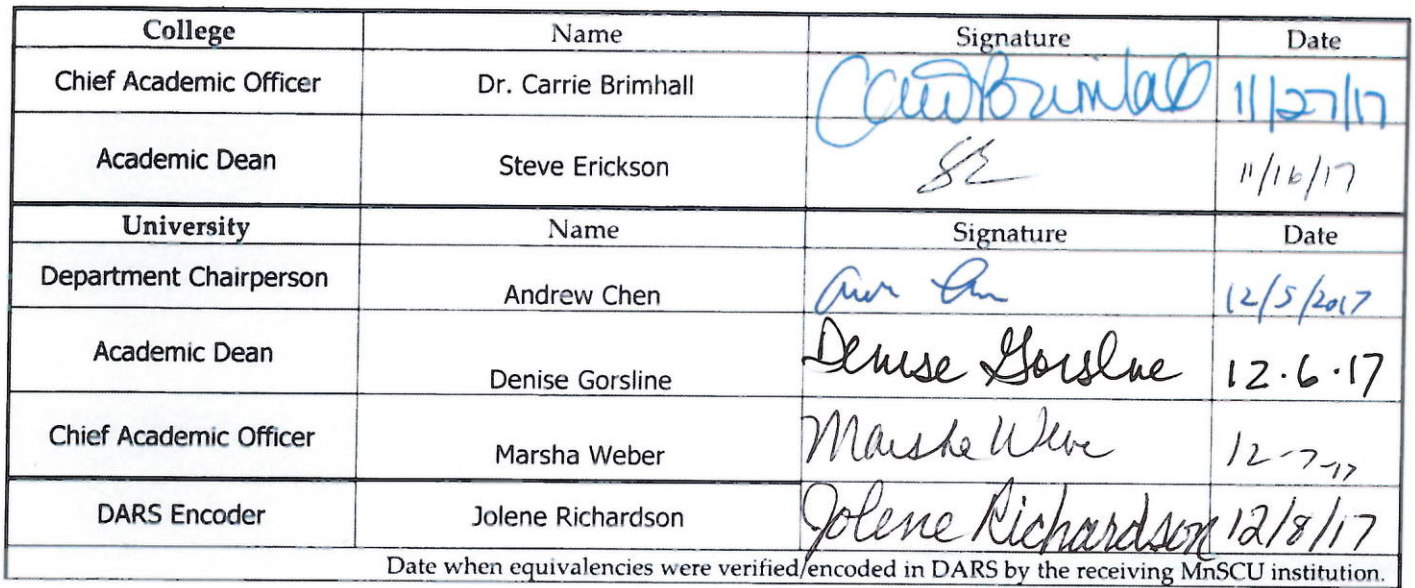 College Name Signature Date
Chief Academic Officer Dr. Carrie Brimhall Carrie Brimhall 11/27/17
Academic Dean Steve Erickson SE 11/16/17
University Name Signature Date
Department Chairperson Andrew Chen 12/5/2017
Academic Dean Denise Gorsline Denise Gorsline 12.6.17
Chief Academic Officer Marsha Weber Marsha Weber 12-7-17
DARS Encoder Jolene Richardson Jolene Richardson 12/8/17
Date when equivalencies were verified/encoded in DARS by the receiving MnSCU institution.